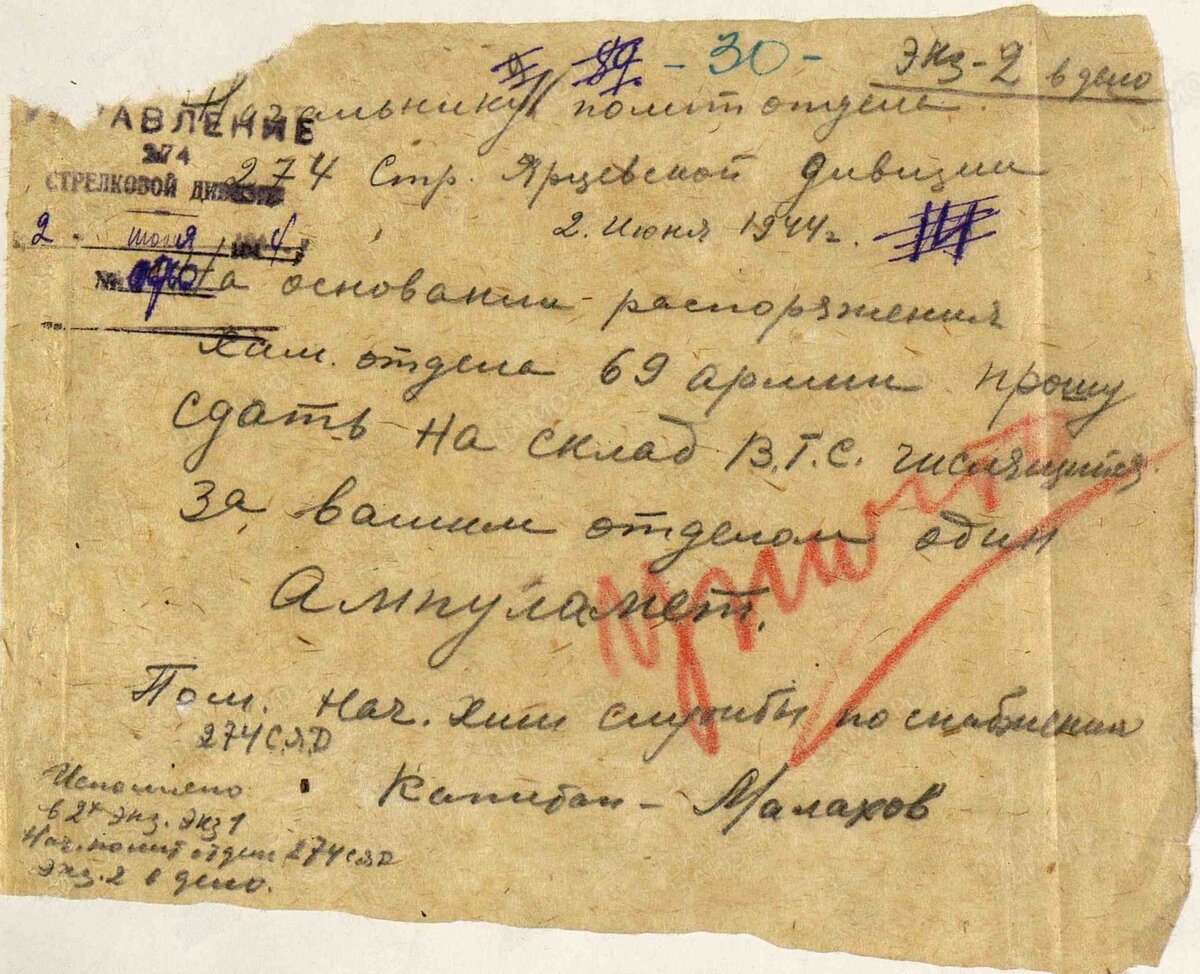 - 30 -
Экз-2 в дело
УПРАВЛЕНИЕ
274
СТРЕЛКОВОЙ ДИВИЗИИ
2 июня 1944 г.
№
Начальнику политотдела
274 Стр. Ярцевской дивизии
2. Июня 1944г.
На основании распоряжения
Хим. отдела 69 армии прошу
сдать на склад В.Т.С. числящийся
за вашим отделом один
Ампуламет.
Пом. Нач. Хим службы по снабжению
274 С.Я.Д
Капитан - Малахов
Исполнено
в 2х экз. экз 1
Нач. полит отдела 274 СЯД
Экз. 2 в дело.